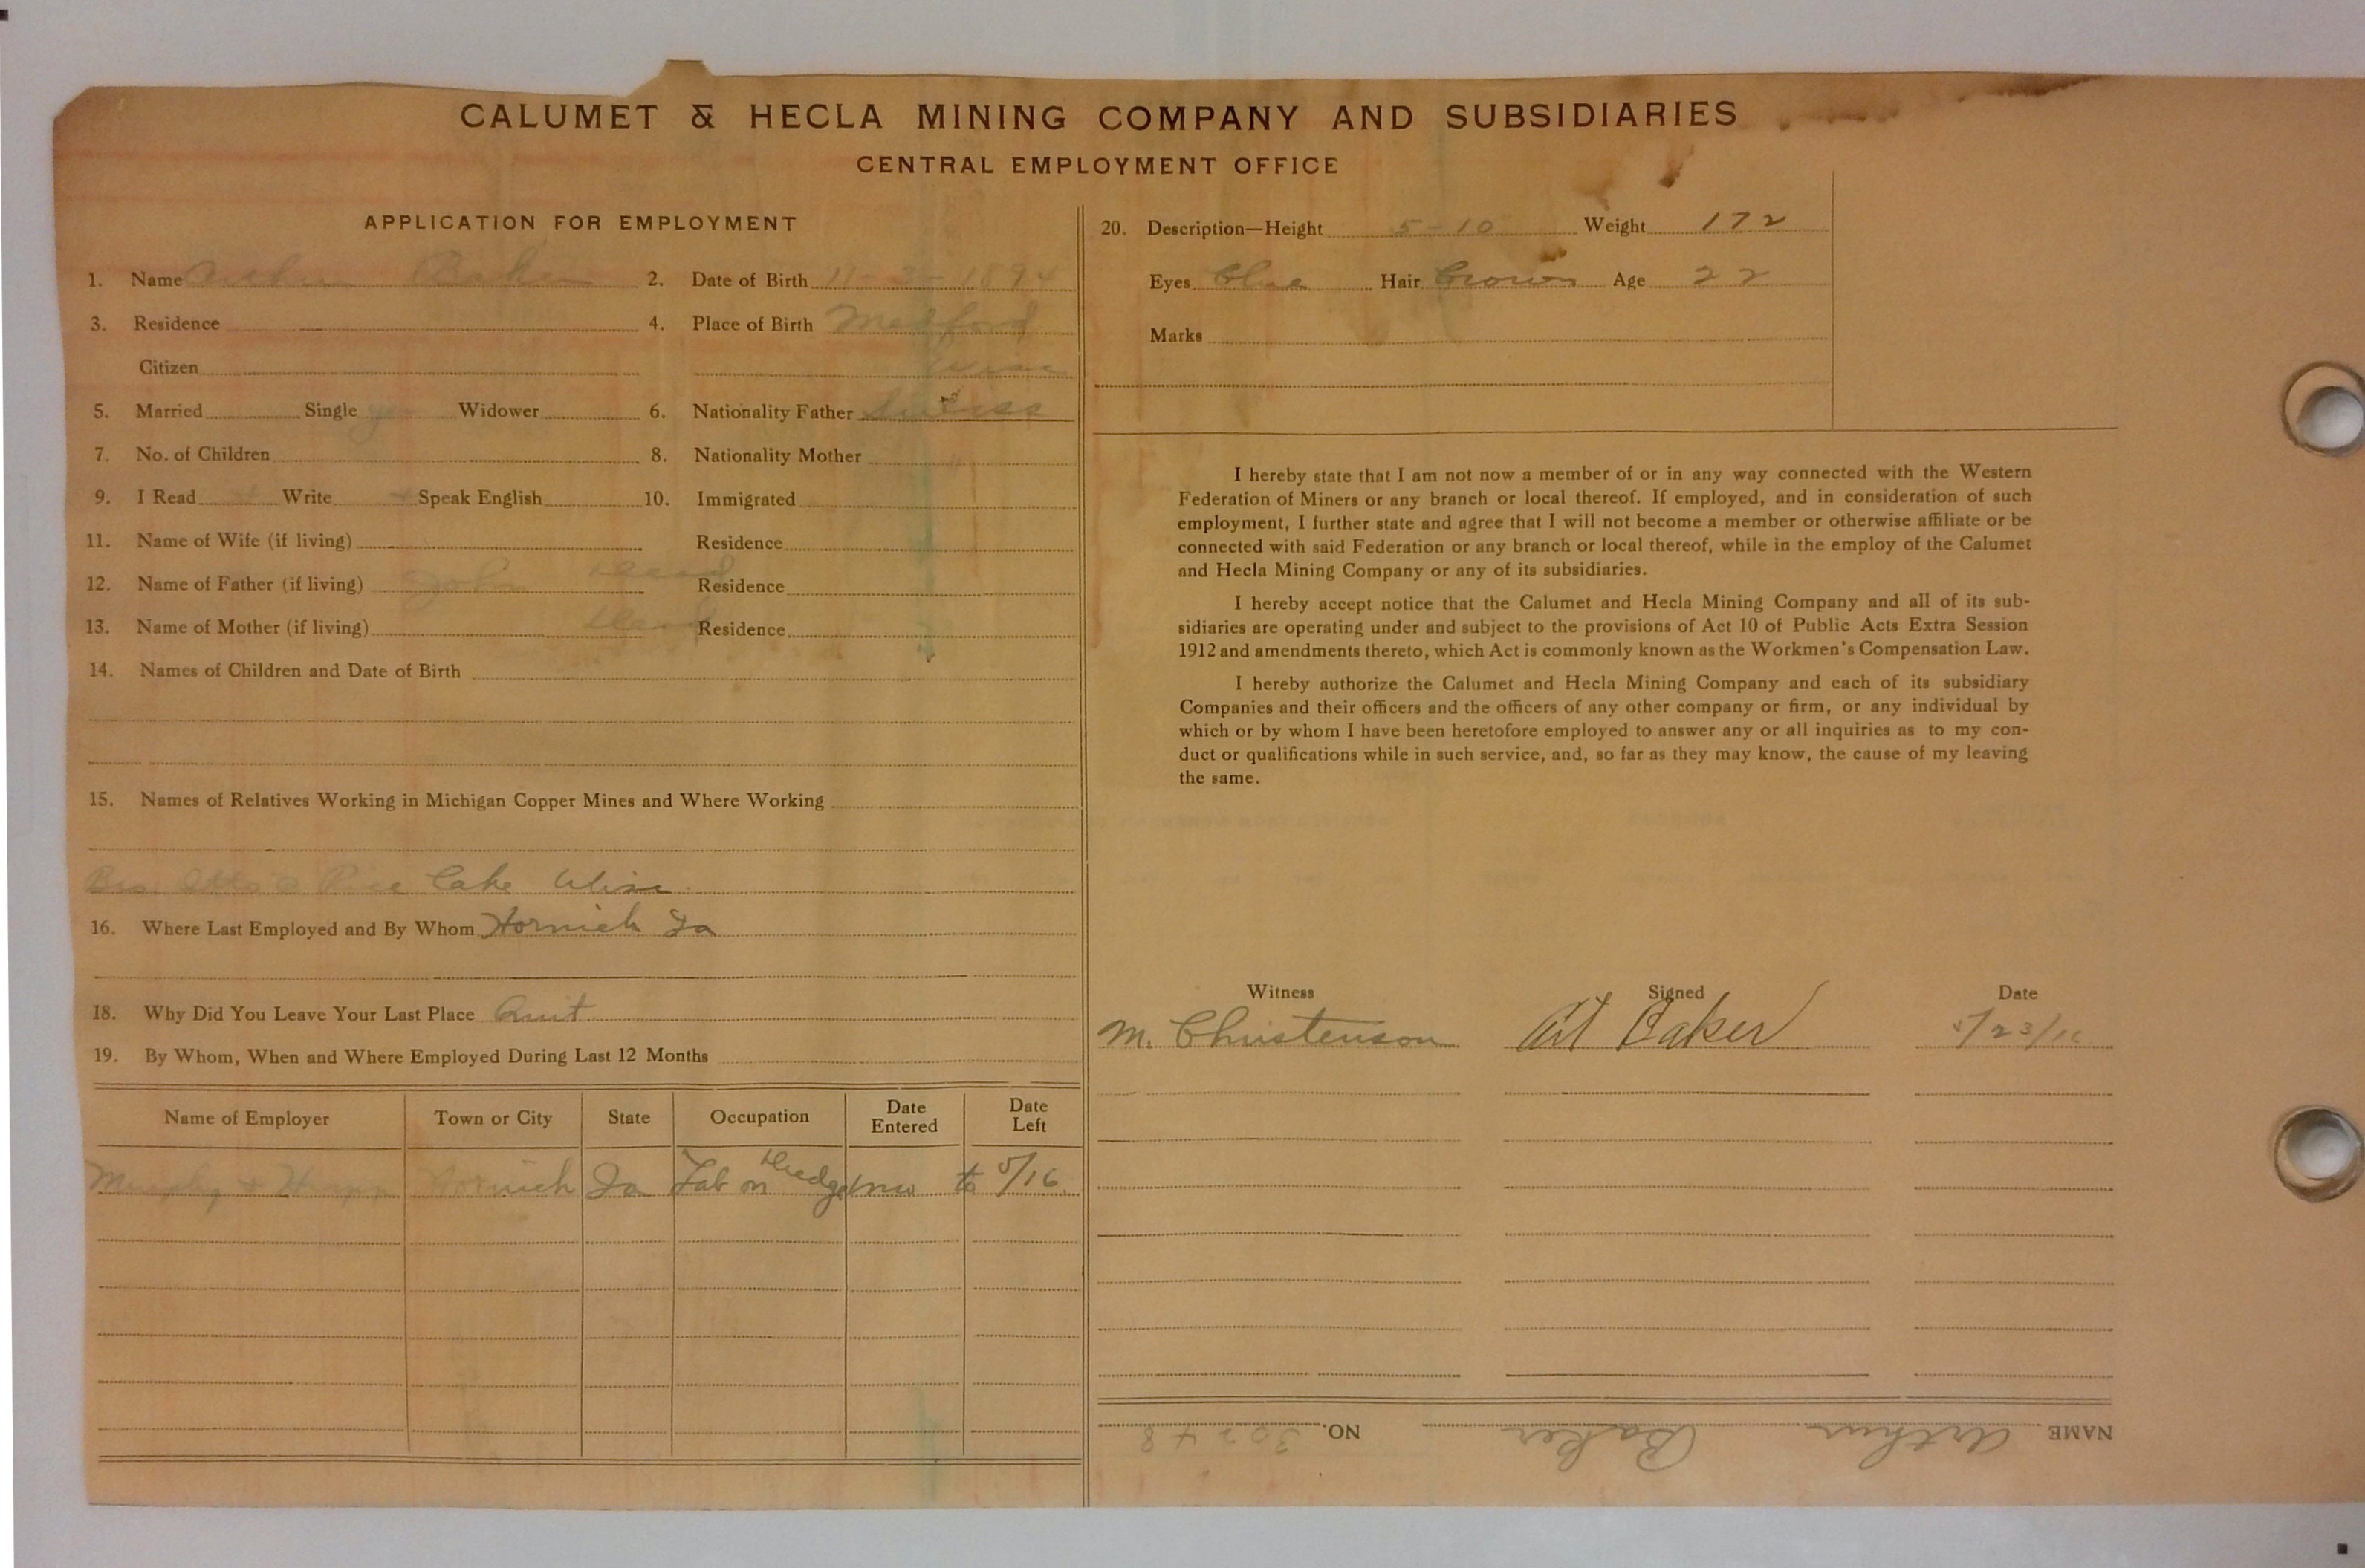 CALUMET & HECLA MINING COMPANY AND SUBSIDIARIES
CENTRAL EMPLOYMENT OFFICE
APPLICATION FOR EMPLOYMENT
1. Name Arthur Baker 2. Date of Birth 11-3-1894
3. Residence 4. Place of Birth Medford
Citizen Wisc
5. Married Single yes Widower 6. Nationality Father Swiss
7. No. of Children 8. Nationality Mother "
9. I Read Write Speak English 10. Immigrated
11. Name of Wife (if living) Residence
12. Name of Father (if living) John Dead Residence
13. Name of Mother (if living) Dead Residence
14. Names of Children and Date of Birth
15. Names of Relatives Working in Michigan Copper Mines and Where Working
Bro. Otto @ Rice Lake Wisc.
16. Where Last Employed and By Whom Hornick Ia
18. Why Did You Leave Your Last Place Quit
19. By Whom, When and Where Employed During Last 12 Months
Name of Employer Town or City State Occupation Date Entered Date Left
Murphy + Hornick Ia Lab on Dredge to 5/16
20. Description—Height 5-10 Weight 172
Eyes Blue Hair Brown Age 22
Marks
I hereby state that I am not now a member of or in any way connected with the Western
Federation of Miners or any branch or local thereof. If employed, and in consideration of such
employment, I further state and agree that I will not become a member or otherwise affiliate or be
connected with said Federation or any branch or local thereof, while in the employ of the Calumet
and Hecla Mining Company or any of its subsidiaries.
I hereby accept notice that the Calumet and Hecla Mining Company and all of its sub-
sidiaries are operating under and subject to the provisions of Act 10 of Public Acts Extra Session
1912 and amendments thereto, which Act is commonly known as the Workmen's Compensation Law.
I hereby authorize the Calumet and Hecla Mining Company and each of its subsidiary
Companies and their officers and the officers of any other company or firm, or any individual by
which or by whom I have been heretofore employed to answer any or all inquiries as to my con-
duct or qualifications while in such service, and, so far as they may know, the cause of my leaving
the same.
Witness Signed Date
M. Christenson Art Baker 5/23/16
NAME Arthur Baker NO.